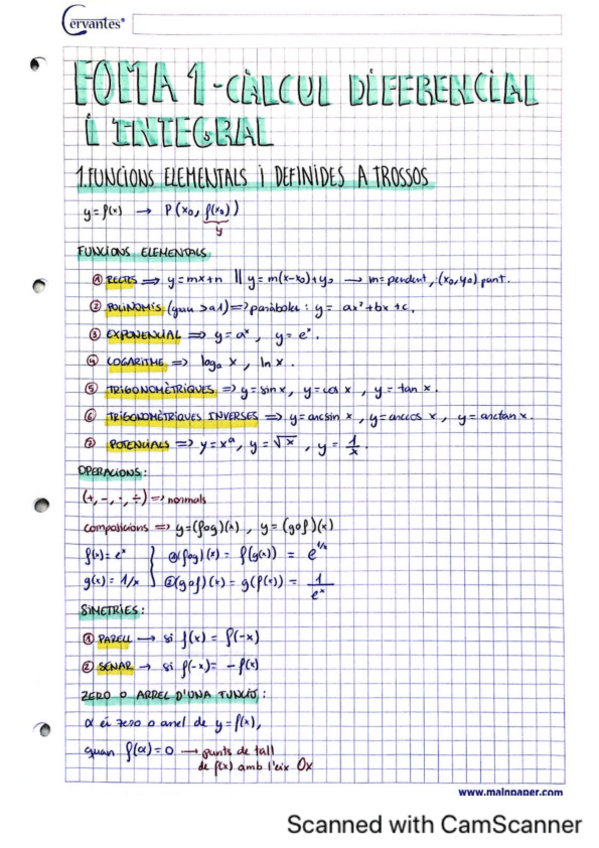 Cervantes®
FOMA 1 - CÀLCUL DIFERENCIAL
I INTEGRAL
1. FUNCIONS ELEMENTALS I DEFINIDES A TROSSOS
y = f(x) → P(x₀, f(x₀))
y
FUNCIONS ELEMENTALS
① RECTES ⇒ y = mx+n || y = m(x-x₀)+y₀ → m = pendent, (x₀,y₀) punt.
② POLINOMIS (grau > a 1) ⇒ paràbola: y = ax²+bx+c.
③ EXPONENCIAL ⇒ y = aˣ, y = eˣ.
④ LOGARITME ⇒ logₐ x, ln x.
⑤ TRIGONOMÈTRIQUES ⇒ y = sin x, y = cos x, y = tan x.
⑥ TRIGONOMÈTRIQUES INVERSES ⇒ y = arcsin x, y = arccos x, y = arctan x.
⑦ POTENCIALS ⇒ y = xᵃ, y = √x, y = 1/x.
OPERACIONS:
(+, -, ·, ÷) ⇒ normals
composicions ⇒ y = (f∘g)(x), y = (g∘f)(x)
f(x) = eˣ } ① (f∘g)(x) = f(g(x)) = e^(1/x)
g(x) = 1/x } ② (g∘f)(x) = g(f(x)) = 1/eˣ
SIMETRIES:
① PARELL → si f(x) = f(-x)
② SENAR → si f(-x) = -f(x)
ZERO O ARREL D'UNA FUNCIÓ:
α és zero o arrel de y = f(x),
quan f(α) = 0 → punts de tall
de f(x) amb l'eix Ox
www.mainpaper.com
Scanned with CamScanner